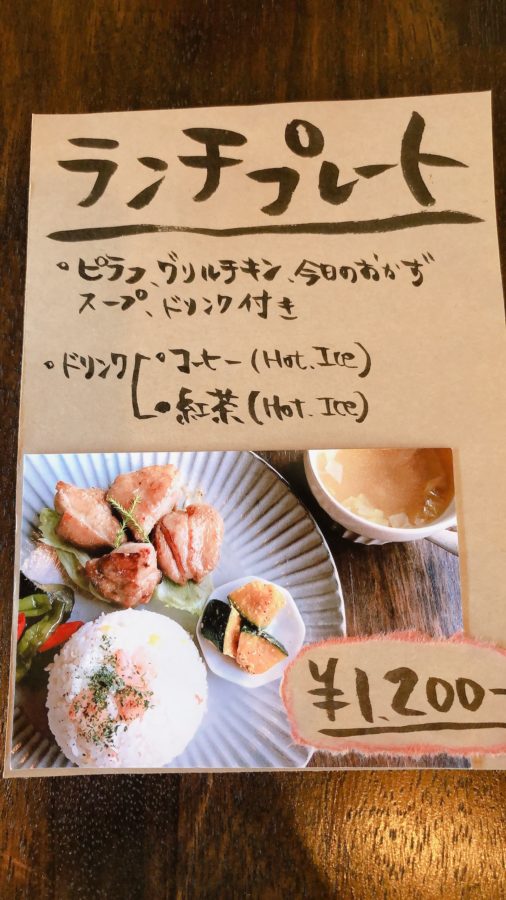 ランチプレート
• ピラフ、グリルチキン、今日のおかず
スープ、ドリンク付き
• ドリンク
• コーヒー (Hot. Ice)
• 紅茶 (Hot. Ice)
¥1,200-